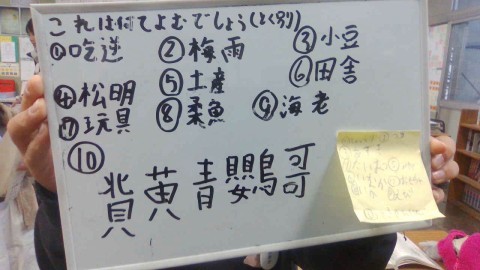 これは何てよむでしょう(とく別)
①吃逆 ②梅雨 ③小豆
④松明 ⑤土産 ⑥田舎
⑦玩具 ⑧柔魚 ⑨海老
⑩
背黄青鸚哥